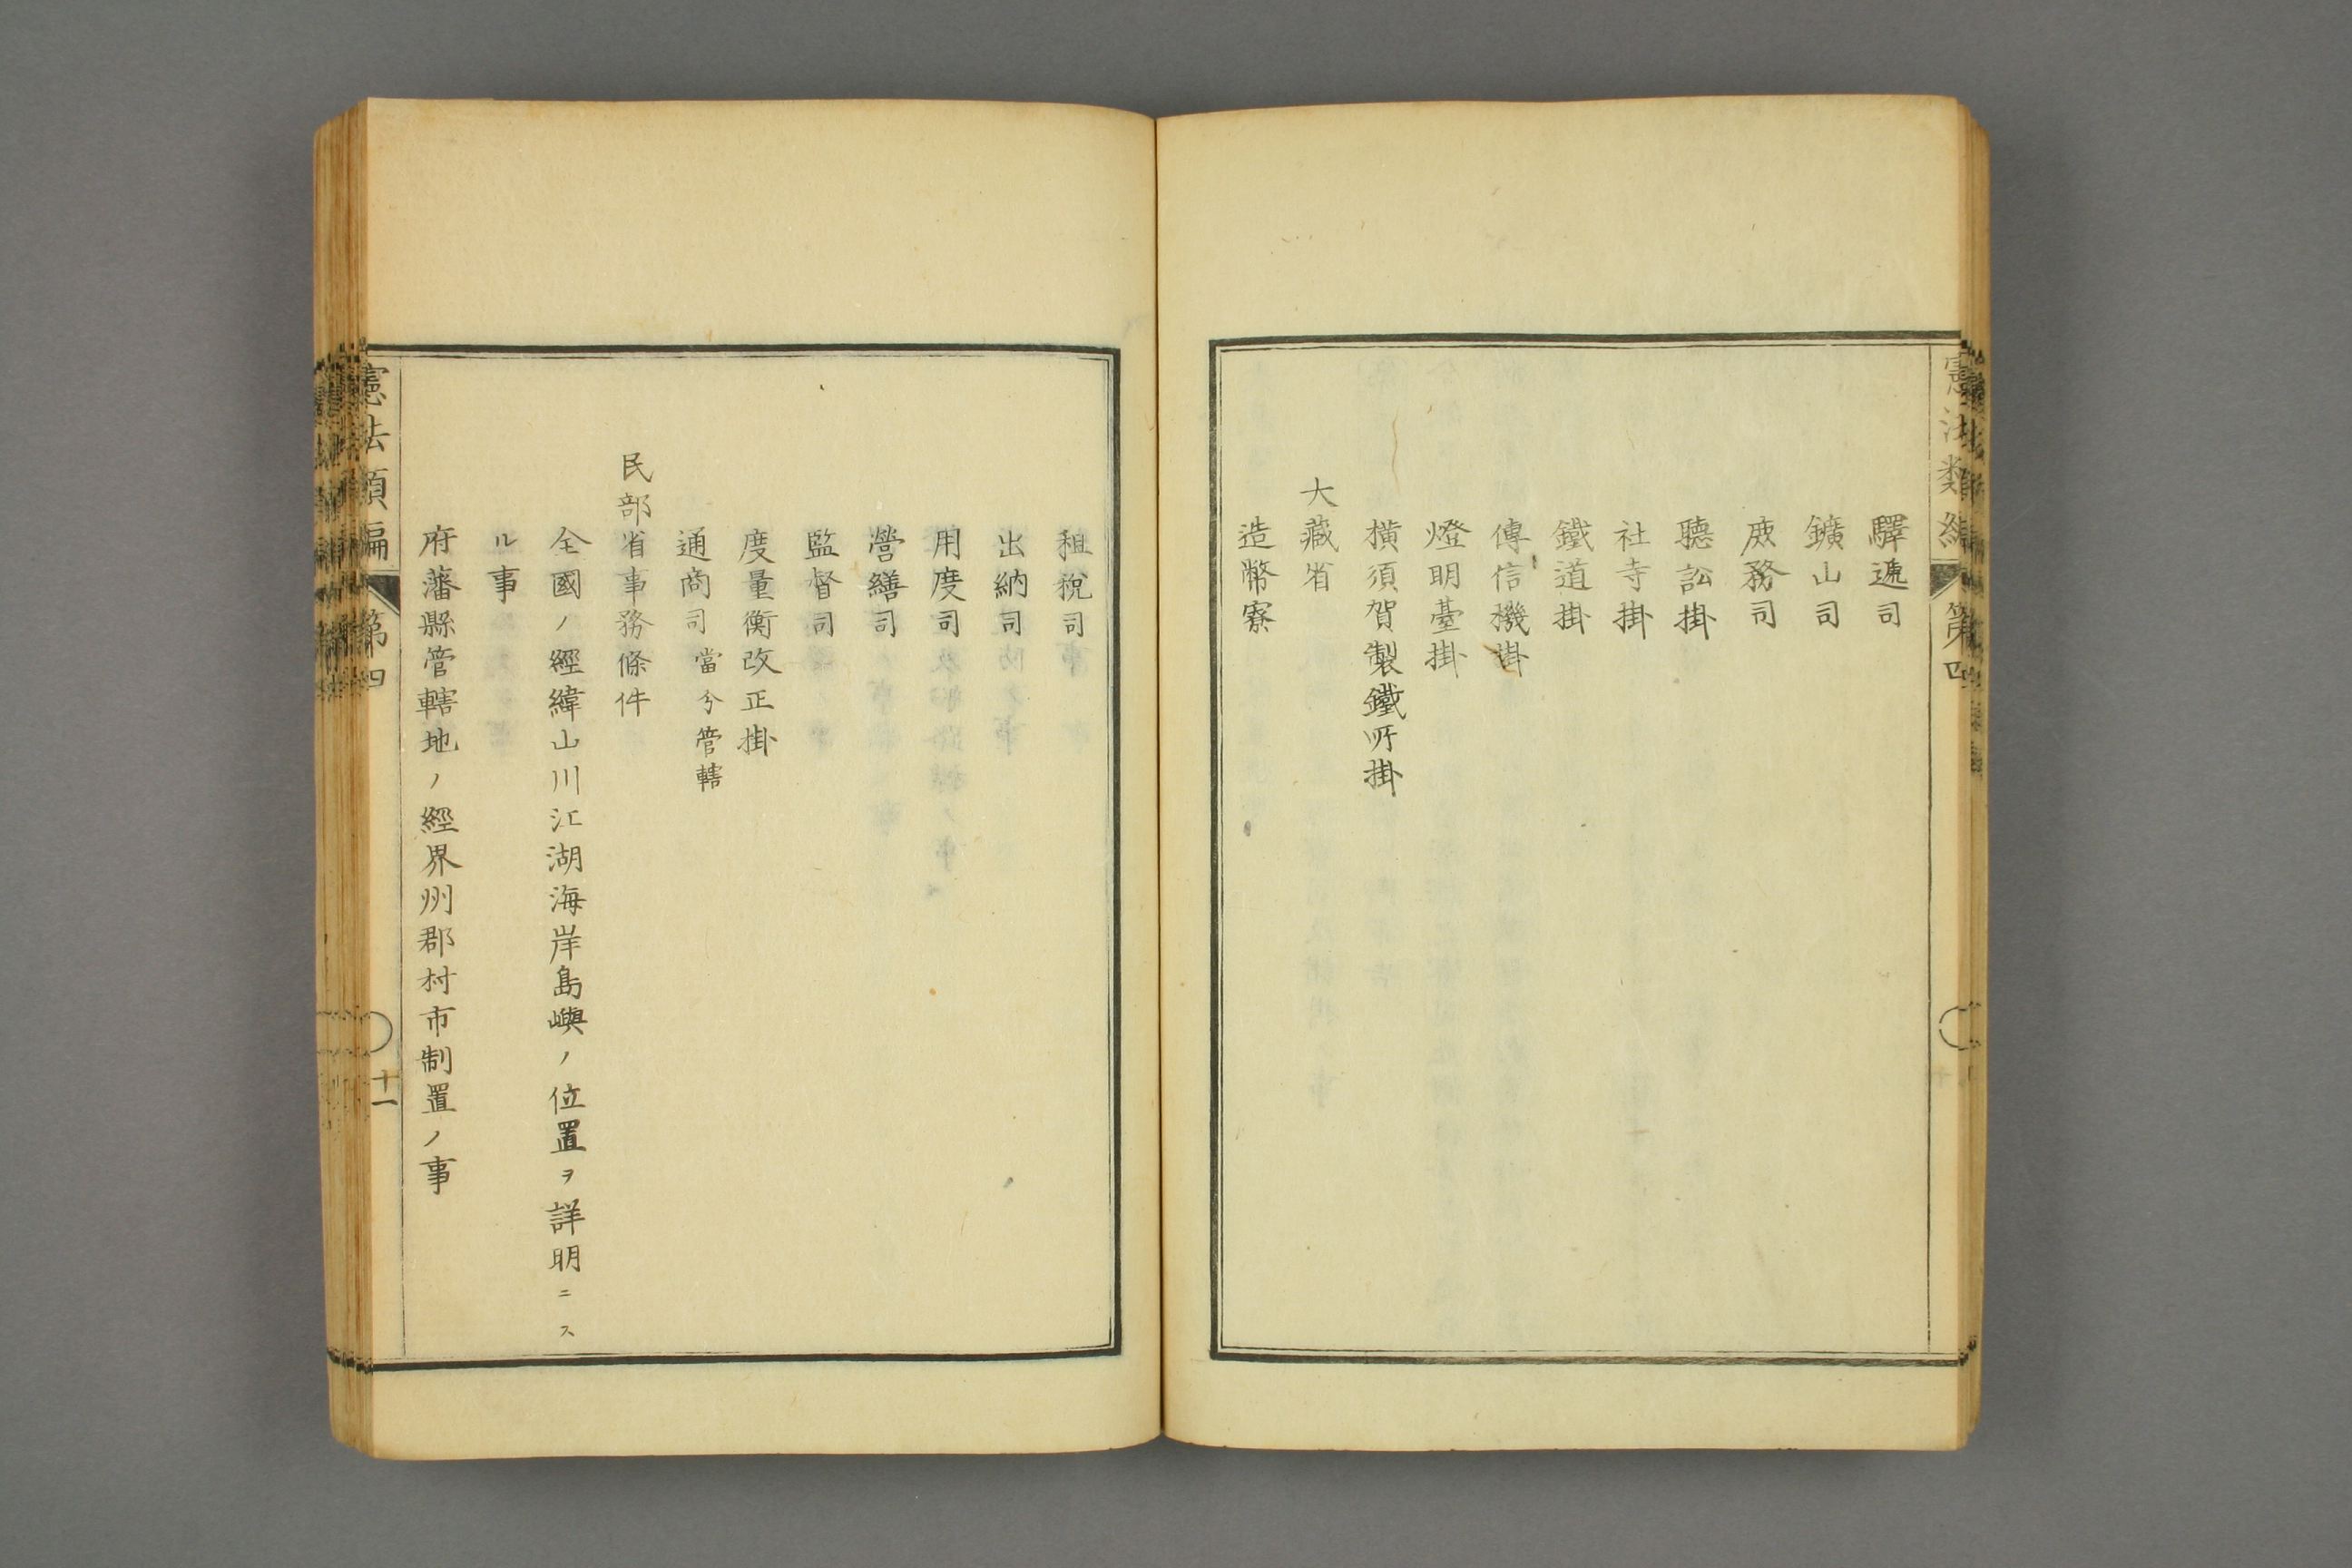 憲法類編 第四
驛遞司
鑛山司
庶務司
聽訟掛
社寺掛
鐵道掛
傳信機掛
燈明臺掛
横須賀製鐵所掛
大藏省
造幣寮
租稅司
出納司
用度司
營繕司
監督司
度量衡改正掛
通商司 當分管轄
民部省事務條件
全國ノ經緯山川江湖海岸島嶼ノ位置ヲ詳明ニス
ル事
府藩縣管轄地ノ經界州郡村市制置ノ事
憲法類編 第四 十一